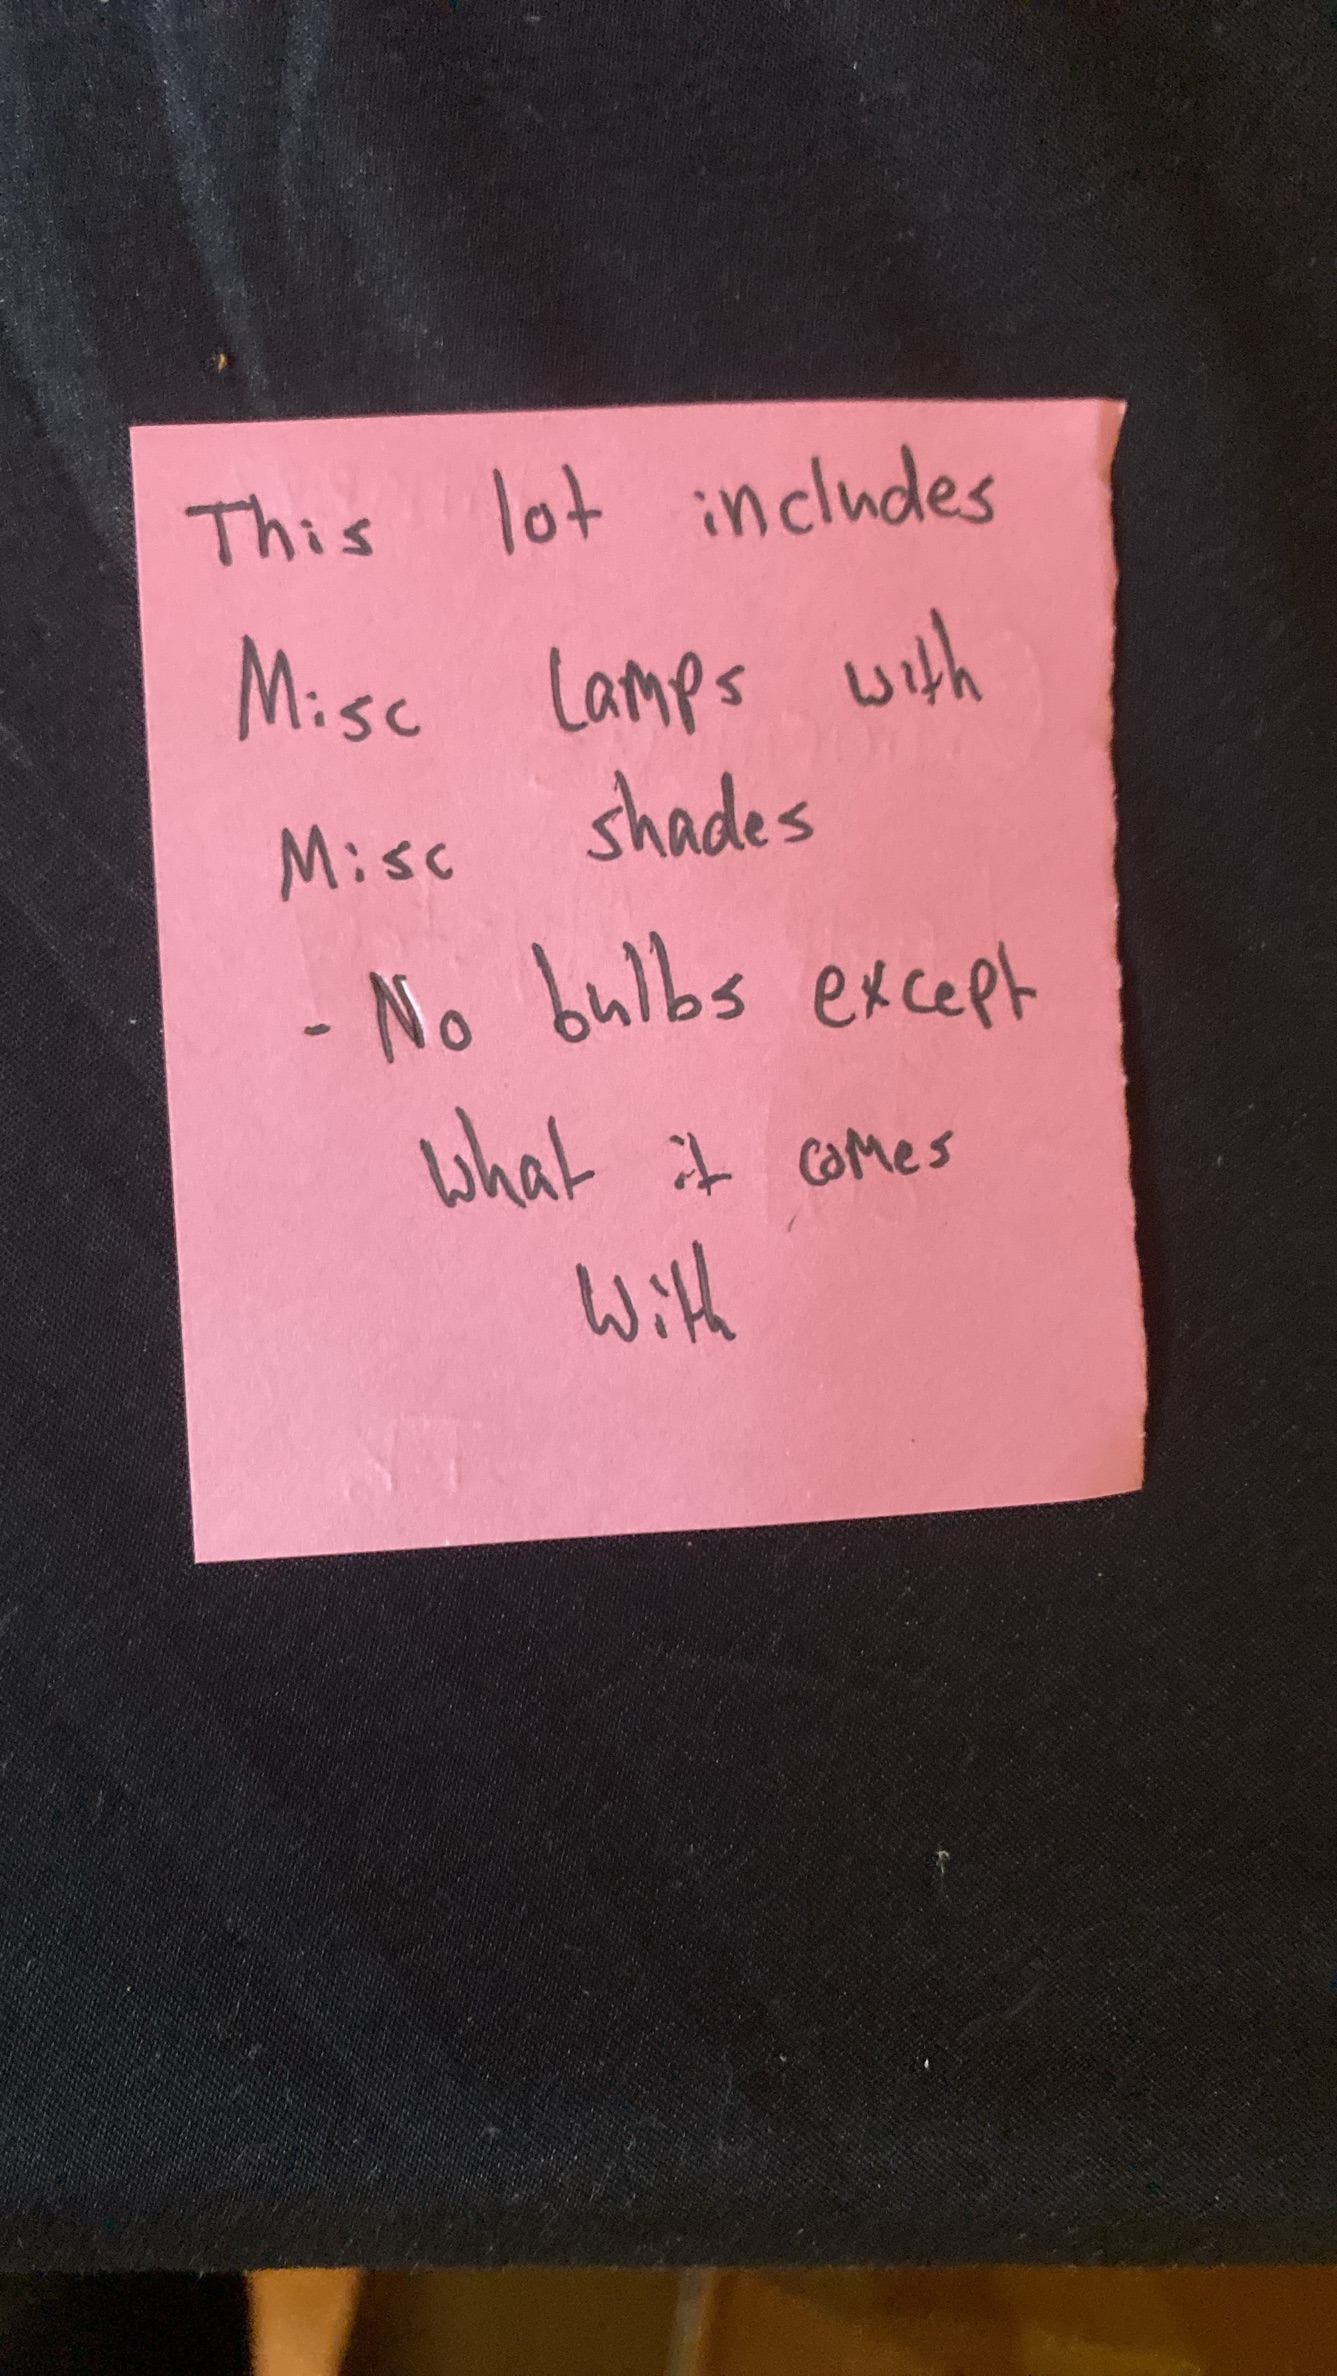 This lot includes
Misc Lamps with
Misc shades
- No bulbs except
what it comes
with